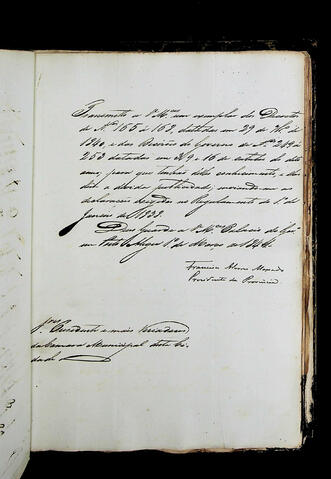 Transmitto a V.Mces um exemplar dos Decretos
de Nos 155 a 162, datados em 29 de
1840, e das Decisões do Governo de Nos 249 a
253 datadas em 9 e 16 de outubro do dito
anno, para que tenhão delles conhecimento, e
dem a devida publicidade,
declaração exigida no Regulamento do 1º de
Janeiro de 1838.
Deos Guarde a V.Mces Palacio do Gov
em Porto Alegre 1º de Março de 1841.
Francisco Alvares Machado
Presidente da Provincia.
Snres Presidente e mais Vereadores
da Camara Municipal desta Ci-
dade